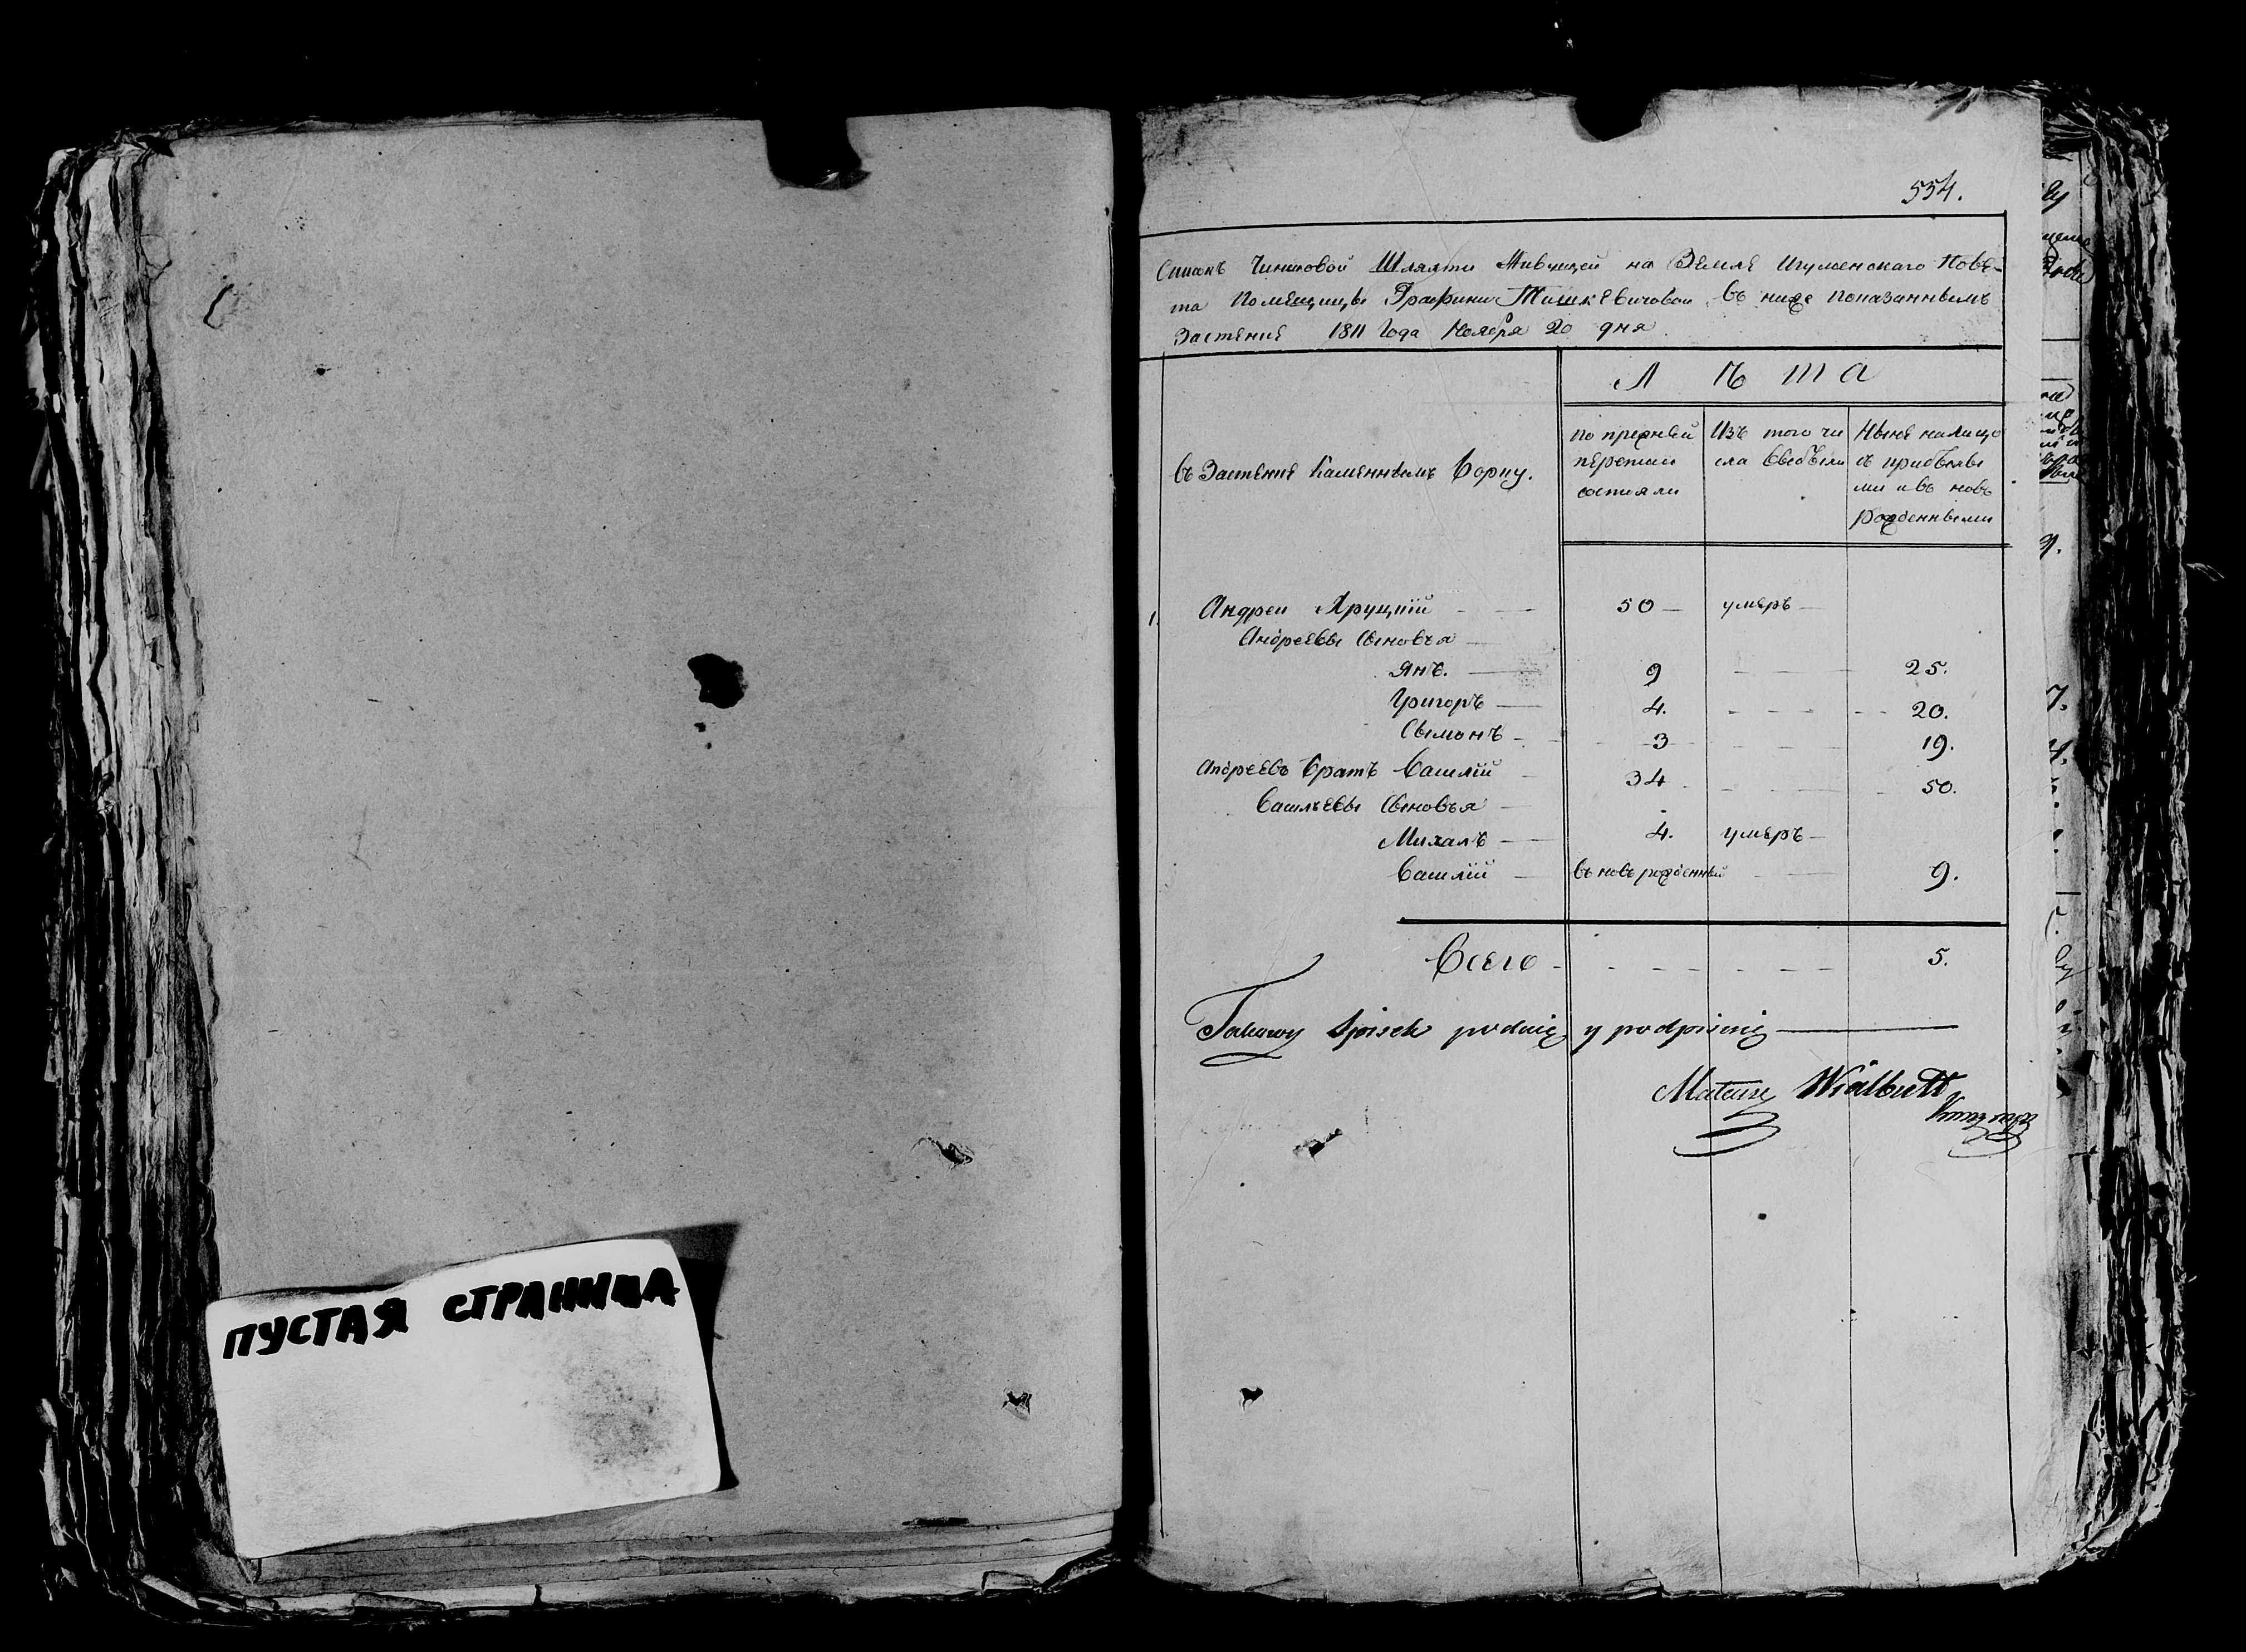 ПУСТАЯ СТРАНИЦА
554.
Списокъ Чиншовой Шляхти Живущей на Земле Игуменскаго Повѣ-
та Помещицы Графини Тишкевичовой въ ниже показаннымъ
Застенке 1811 Года Ноября 20 дня.
Л ѣ т а
Въ Застенке Каменнымъ Борку.
по прежней переписи состояли
Изъ того числа выбыли
Ныне налицо съ прибылыми и въ новь рожденными
1. Андреи Хруцкій 50 умеръ
Андреевы сыновъя
Янъ. 9 25.
Григоръ 4. 20.
Сымонъ 3 19.
Андреевъ братъ Василій 34 50.
Васильевы сыновъя
Михалъ 4. умеръ
Василій въ новь рожденный 9.
Всего 5.
Takowy Spisek podaię y podpisuię
Mateusz Widlbutt